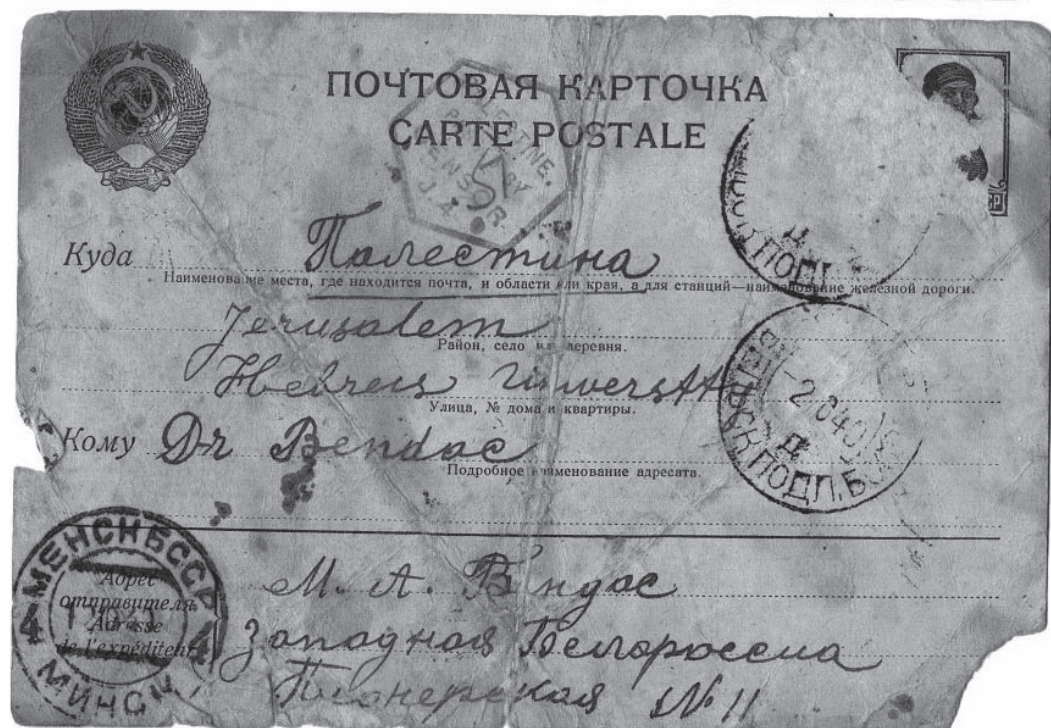 ПОЧТОВАЯ КАРТОЧКА
CARTE POSTALE
Куда Палестина
Наименование места, где находится почта, и области или края, а для станций—наименование железной дороги.
Jerusalem
Район, село или деревня.
Hebrew
Улица, № дома и квартиры.
Кому Dr Bendac
Подробное наименование адресата.
МЕНСК БССР
МИНСК
Адрес
отправителя
Adresse
de l'expéditeur
М. А. Бендас
Западная Белоруссиа
Пионерская № 11